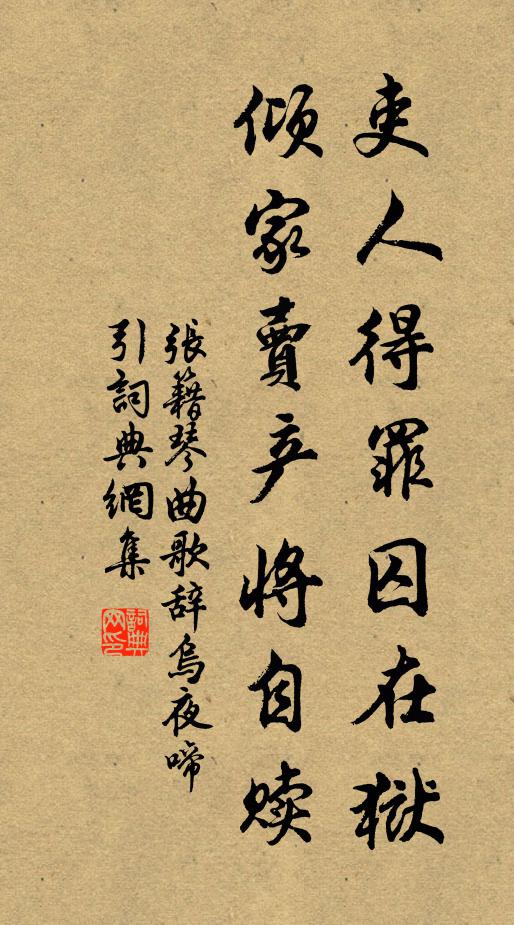 吏人得罪囚在獄
傾家賣产將自赎
張籍琴曲歌辞烏夜啼
引詞典網集
詞典网印